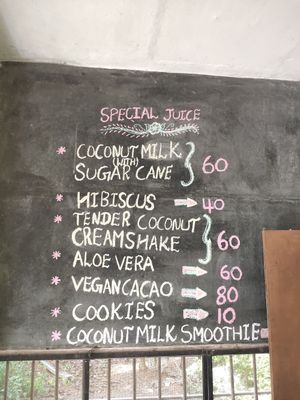 SPECIAL JUICE
* COCONUT MILK
(WITH)
SUGAR CANE } 60
* HIBISCUS → 40
* TENDER COCONUT
CREAMSHAKE } 60
* ALOE VERA → 60
* VEGAN CACAO → 80
* COOKIES → 10
* COCONUT MILK SMOOTHIE